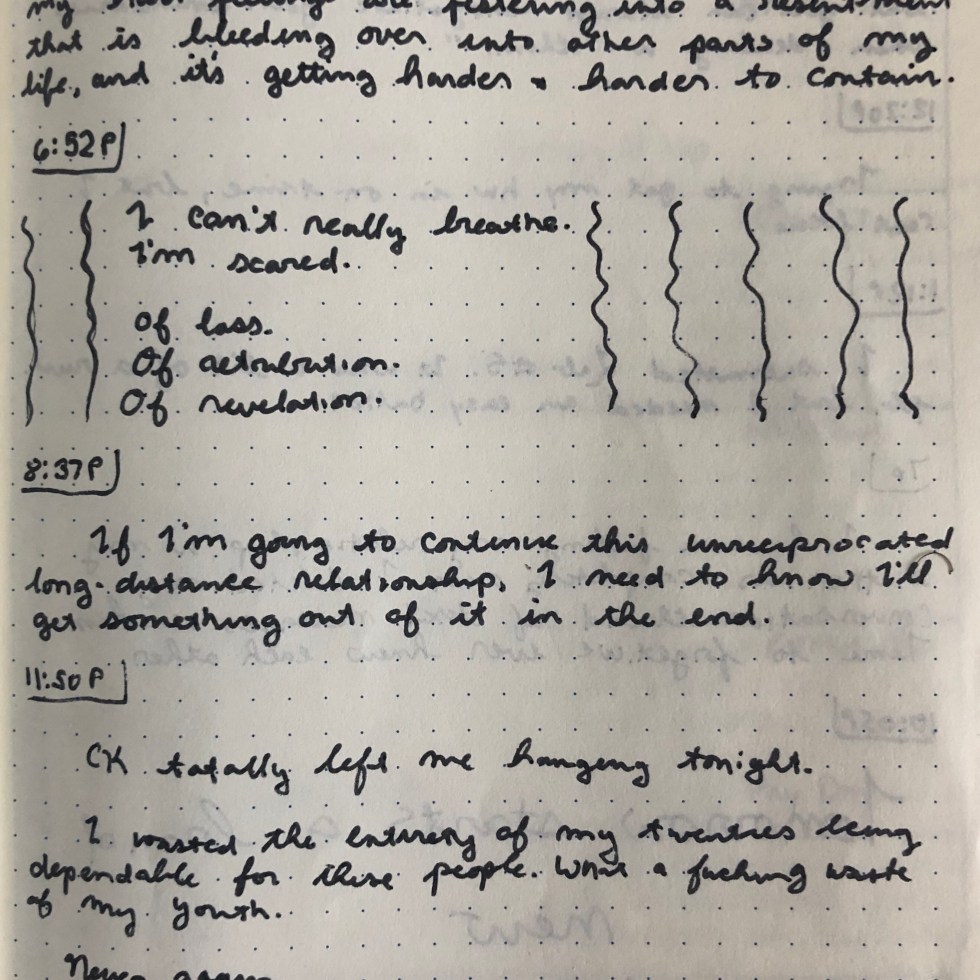 my feelings are festering into a resentment
that is bleeding over into other parts of my
life, and it's getting harder & harder to contain.
6:52P
I can't really breathe.
I'm scared.
Of loss.
Of retribution.
Of revelation.
8:37P
If I'm going to continue this unreciprocated
long-distance relationship, I need to know I'll
get something out of it in the end.
11:50P
CK totally left me hanging tonight.
I wasted the entirety of my twenties being
dependable for these people. What a fucking waste
of my youth.
Never again